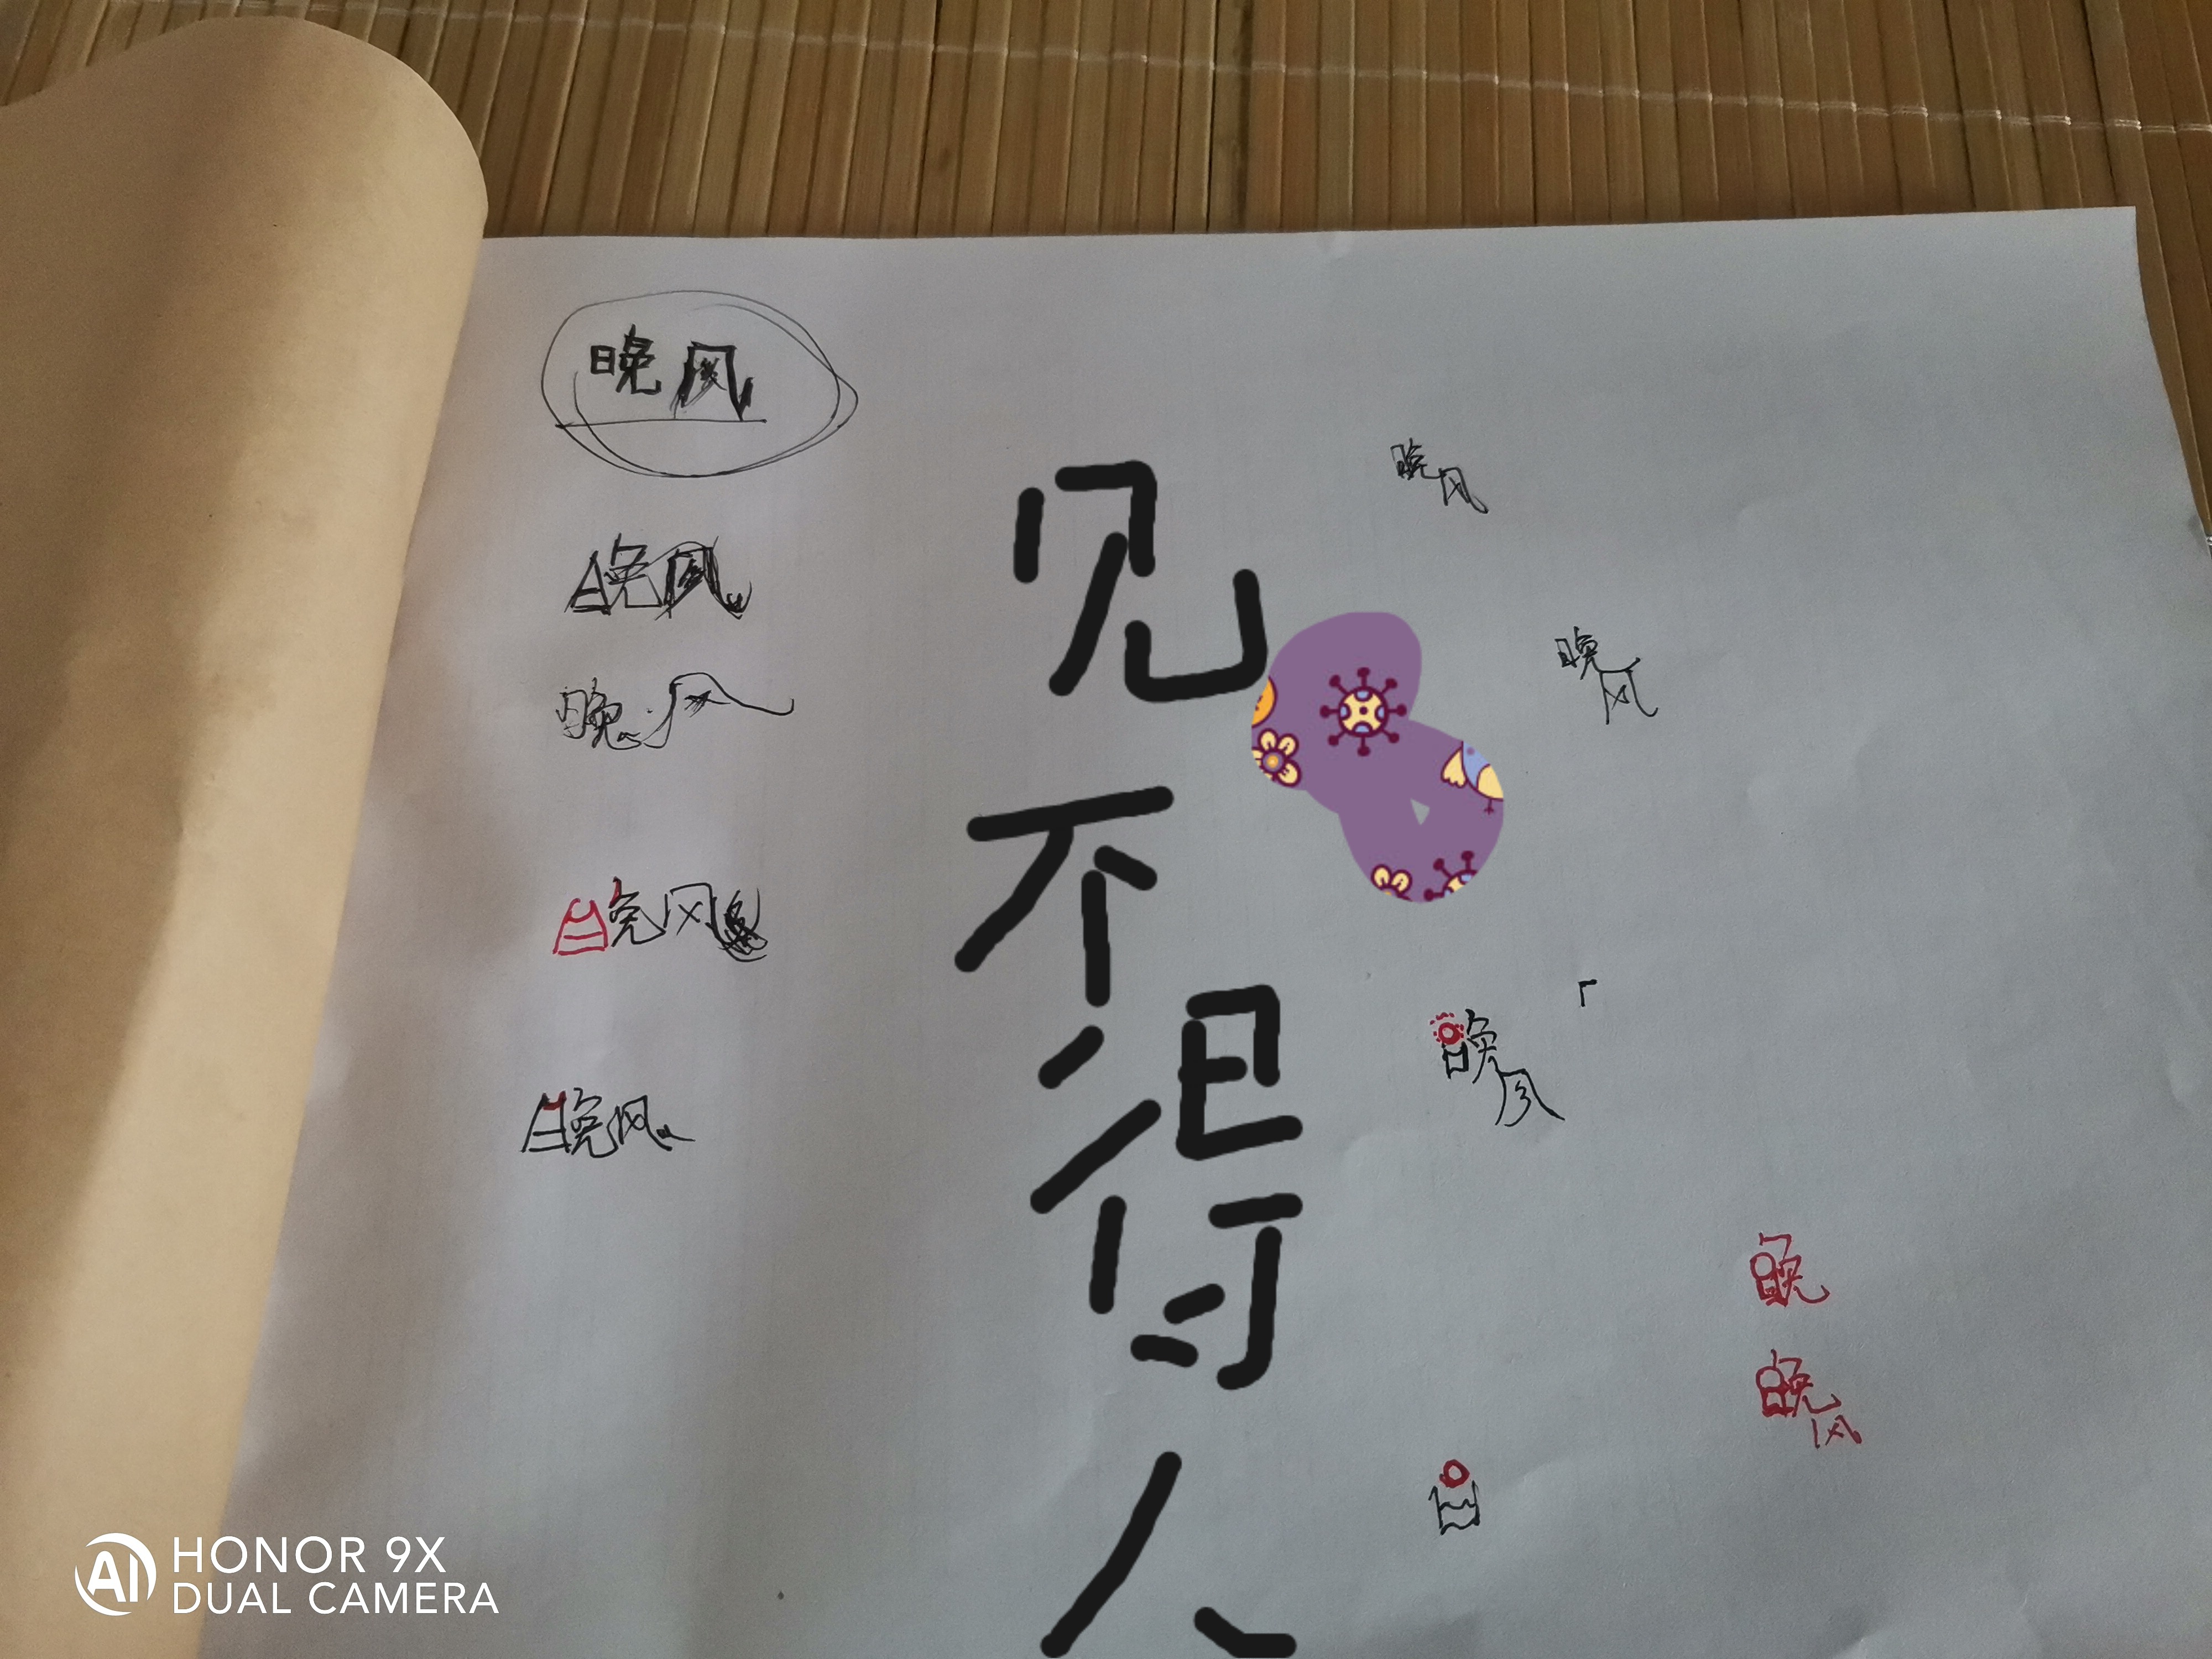 晚风
晚风
晚风
晚风
晚风
见
不
得
人
晚
风
晚
风
晚
风
晚
晚
风
日
HONOR 9X
DUAL CAMERA
AI